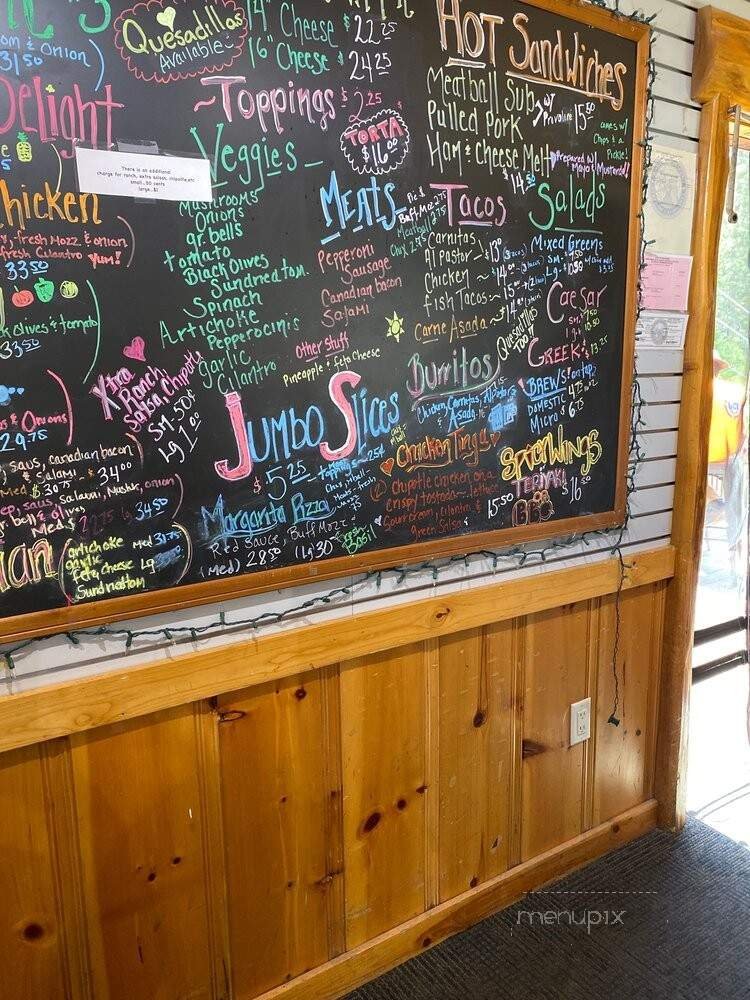 Quesadillas
Available
14" Cheese $22.25
16" Cheese $24.25
~Toppings $2.25
TORTA
$16.00
Veggies
Mushrooms
Onions
gr. bells
tomato
Black Olives
Sundried tom.
Spinach
Artichoke
Pepperocinis
garlic
Cilantro
MEATS
Pepperoni
Sausage
Canadian bacon
Salami
Other Stuff
Pineapple & Feta Cheese
HOT Sandwiches
Meatball Sub
Pulled Pork
Ham & Cheese Melt
w/ Provolone
15.50
comes w/
Chips & a
Pickle!
Prepared w/
Mayo & Mustard!
$14.50
Tacos
Carnitas
Al Pastor
Chicken
fish Tacos
Carne Asada
Quesadillas
Too!!
Salads
Mixed Greens
Caesar
GREEK
13.25
BREWS! on tap
DOMESTIC 4.75
MICRO 6.75
Burritos
Chicken, Carnitas, Al Pastor
& Asada
Chicken Tinga
chipotle chicken on a
crispy tostada lettuce
sour cream, cilantro &
green Salsa
15.50
SPICY WINGS
TERIYAKI
BBQ
$16.50
JUMBO SLICES
$5.25
Margarita Pizza
Red Sauce, Buff Mozz &
(Med) 28.50 (Lg) 30
Fresh
Basil
Xtra
Ranch,
Salsa, Chipotle
Sm .50¢
Lg 1.00
There is an additional
charge for ranch, extra salsas, chipotle, etc
small..50 cents
large..$1
& Onion)
31.50
Delight
Chicken
fresh Mozz & onion
fresh Cilantro Yum!
33.50
olives & tomato
33.50
& Onions
29.75
saus, canadian bacon
& Salami - $34.00
Med $30.75
pep, saus, Salami, Mush, onion
gr. bell & olives
34.50
artichoke
garlic
feta cheese
Sundried tom
Med 31.75
Lg
menupix